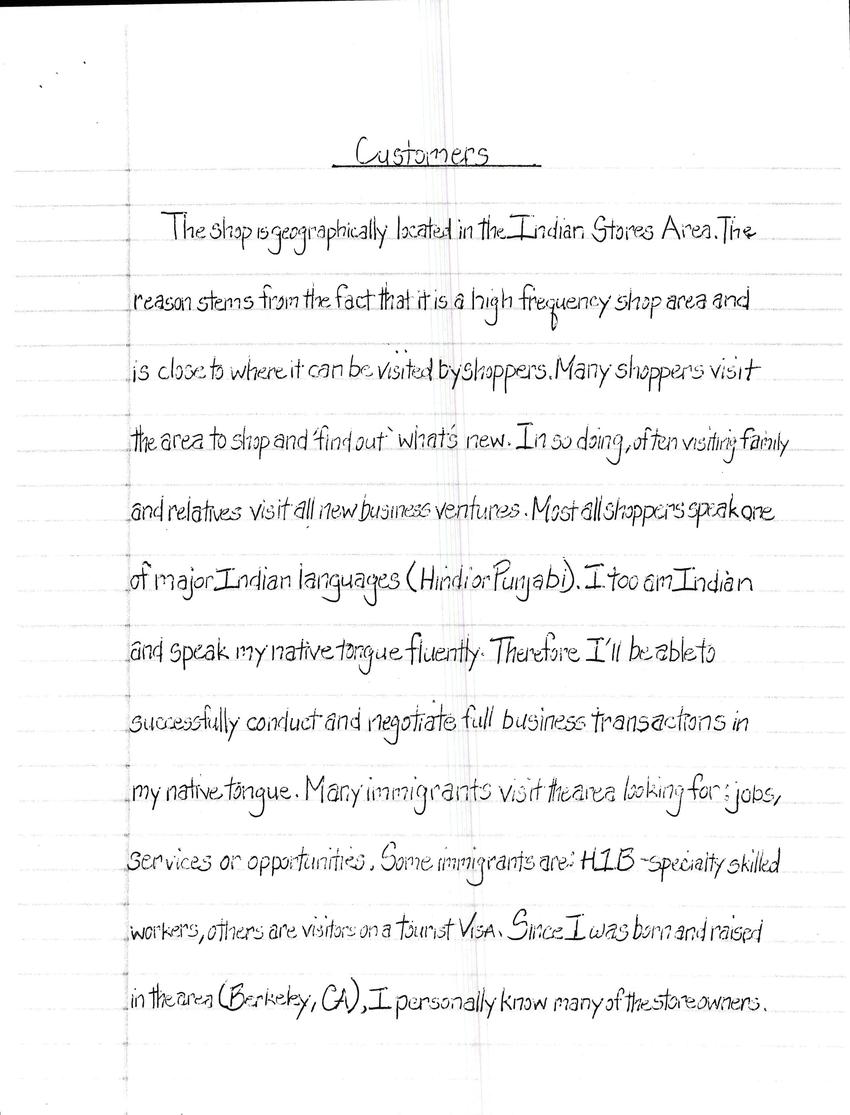 Customers
The shop is geographically located in the Indian Stores Area. The
reason stems from the fact that it is a high frequency shop area and
is close to where it can be visited by shoppers. Many shoppers visit
the area to shop and 'find out' what's new. In so doing, often visiting family
and relatives visit all new business ventures. Most all shoppers speak one
of major Indian languages (Hindi or Punjabi). I too am Indian
and speak my native tongue fluently. Therefore I'll be able to
successfully conduct and negotiate full business transactions in
my native tongue. Many immigrants visit the area looking for: jobs,
services or opportunities. Some immigrants are: H1B -specialty skilled
workers, others are visitors on a tourist VISA. Since I was born and raised
in the area (Berkeley, CA), I personally know many of the store owners.